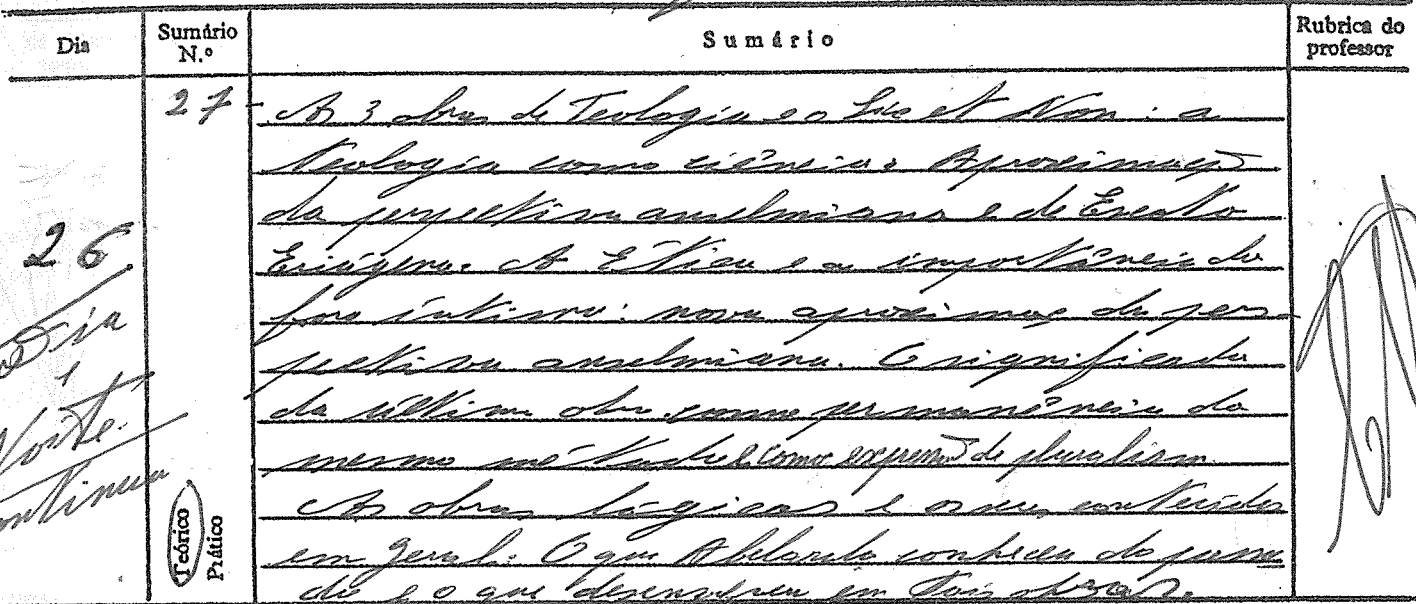 Dia
Sumário N.º
Sumário
Rubrica do professor
26
Dia
e
Noite.
Continua
27
Teórico
Prático
- As 3 obras de Teologia e o Sic et Non: a
teologia como ciência. Aproximaç
da perspectiva anselmiana e de Escoto
Eriúgena. A Ética e a importância do
foro íntimo: nova aproximaç da pers
pectiva anselmiana. O significado
da última obra como permanência do
mesmo método e como expressão de pluralism
As obras lógicas e o seu conteúdo
em geral: O que Abelardo conheceu do passa
do e o que desenvolveu em